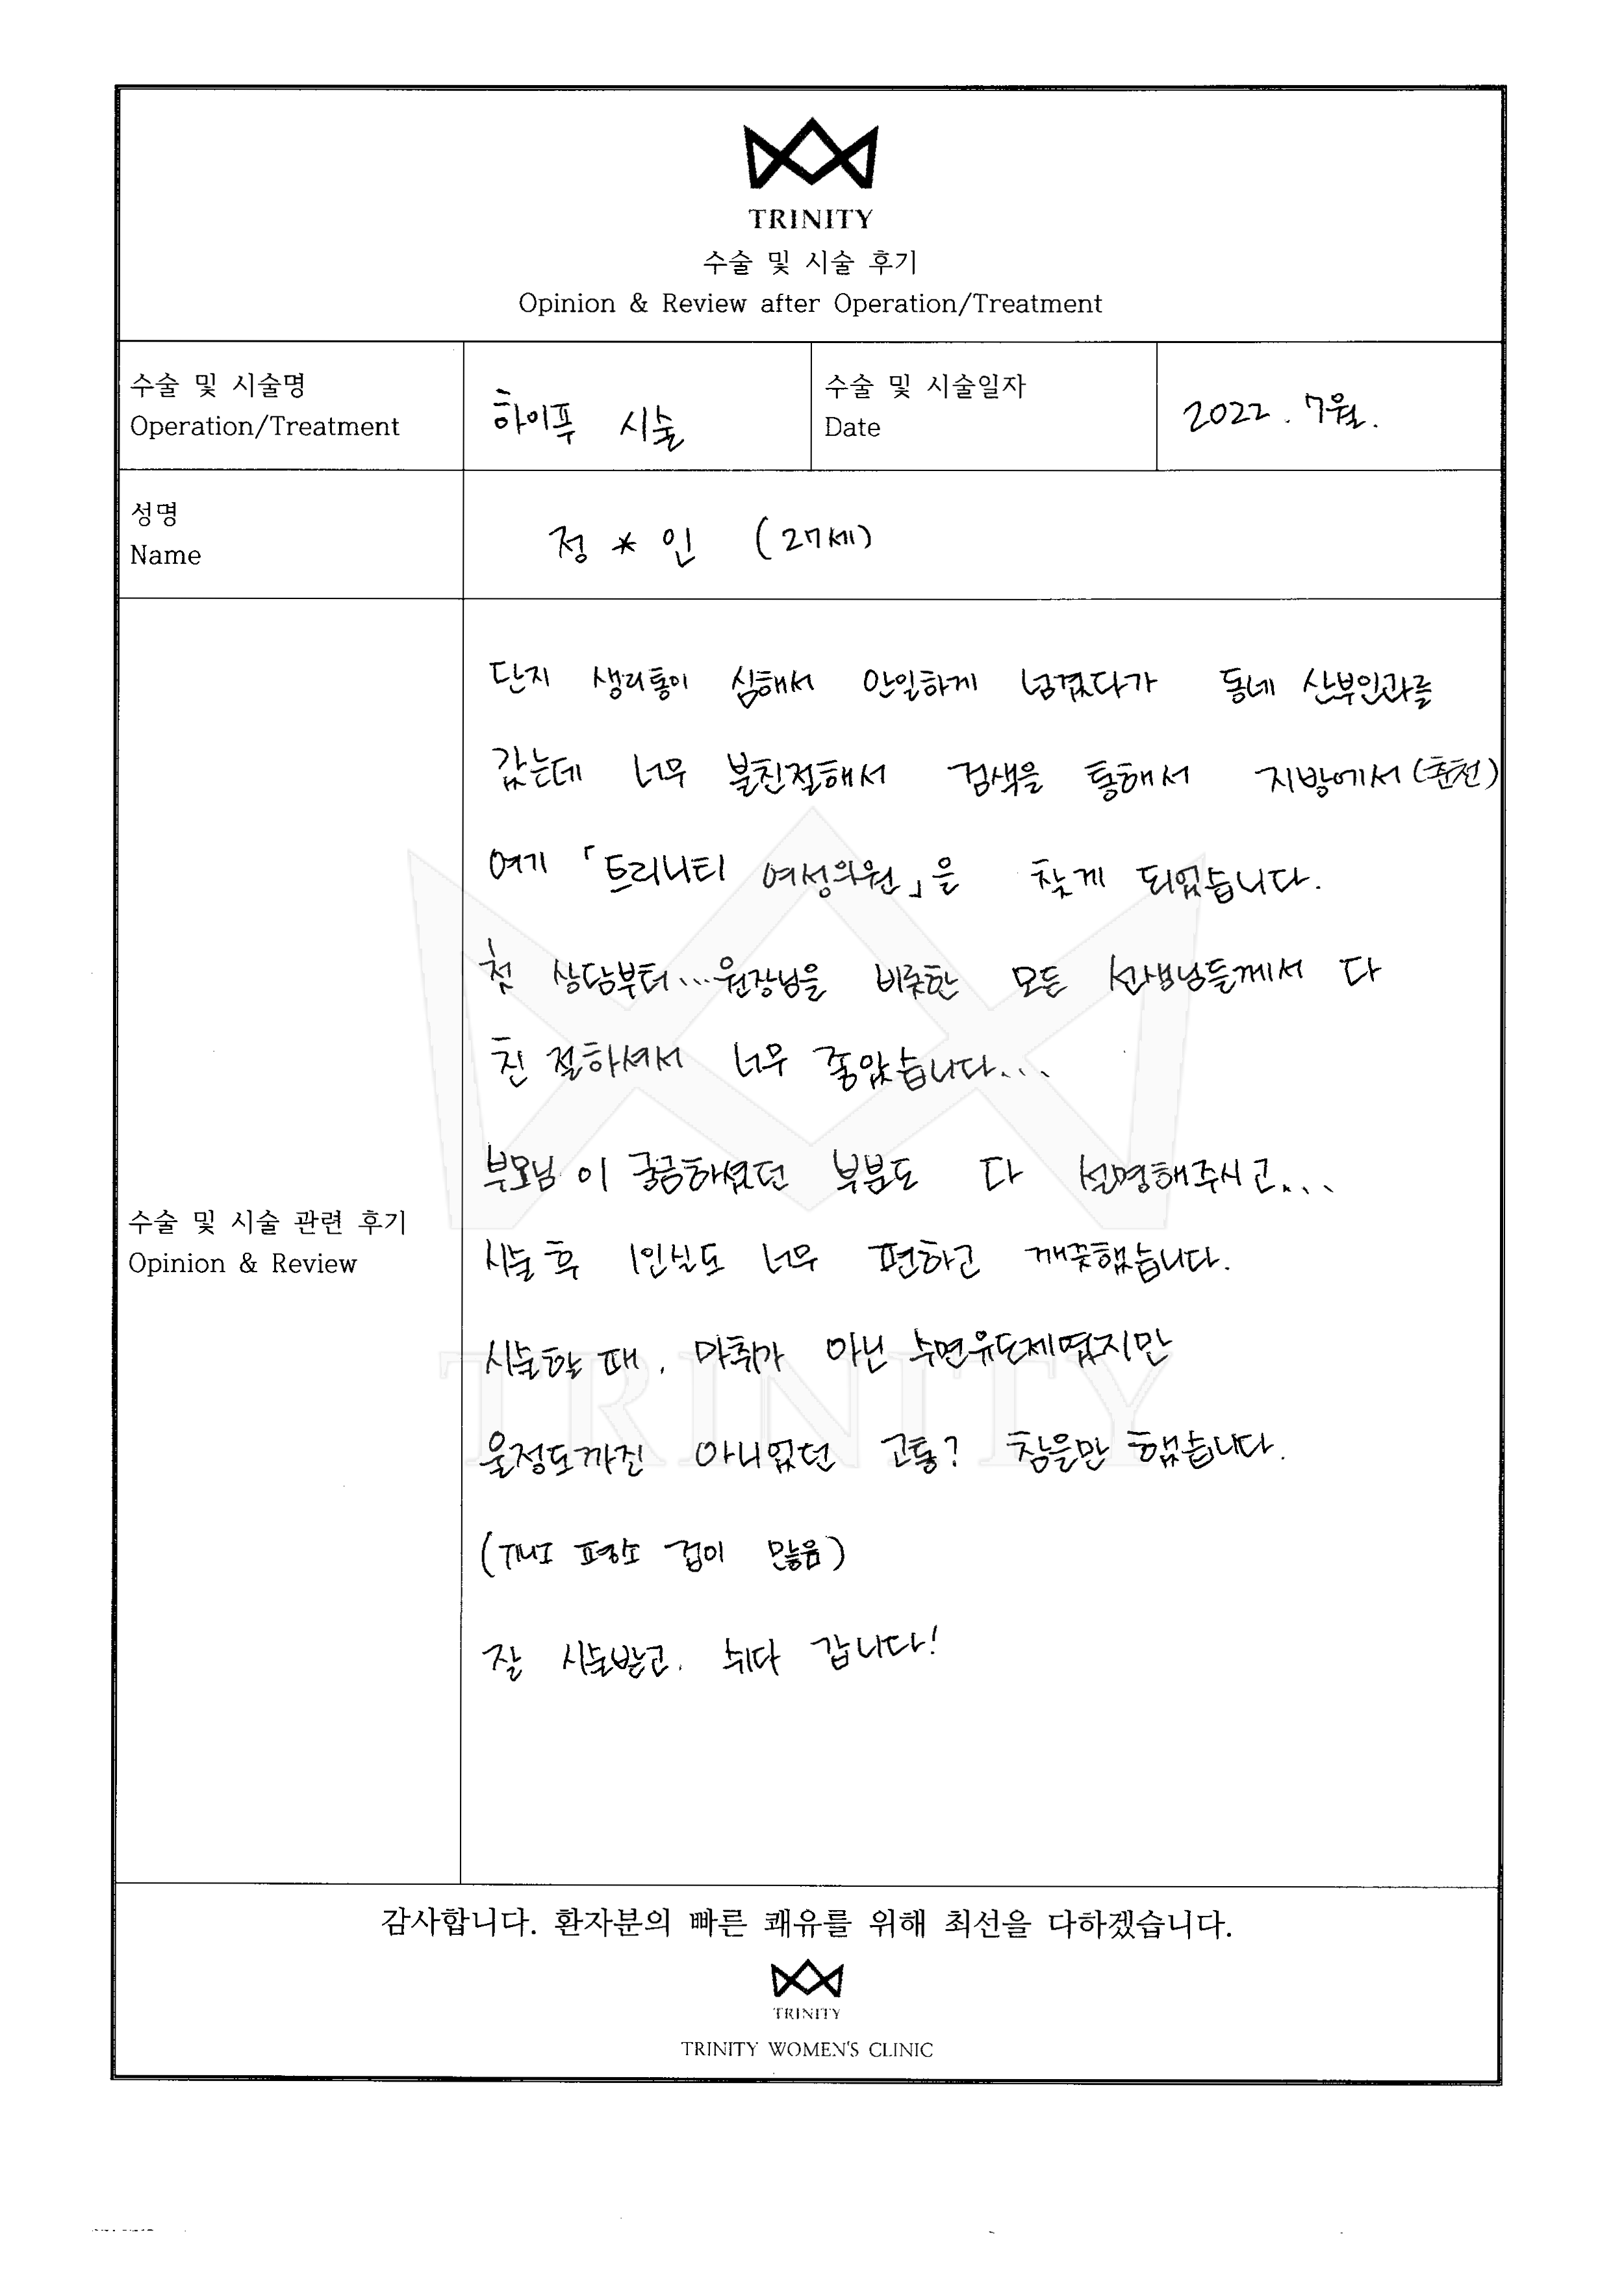 TRINITY
수술 및 시술 후기
Opinion & Review after Operation/Treatment
수술 및 시술명
Operation/Treatment
하이푸 시술
수술 및 시술일자
Date
2022. 7월.
성명
Name
정 * 인 (27세)
수술 및 시술 관련 후기
Opinion & Review
단지 생리통이 심해서 안일하게 넘겼다가 동네 산부인과를
갔는데 너무 불친절해서 검색을 통해서 지방에서(춘천)
여기 「트리니티 여성의원」을 찾게 되었습니다.
첫 상담부터...원장님을 비롯한 모든 선생님들께서 다
친절하셔서 너무 좋았습니다...
부모님이 궁금하셨던 부분도 다 설명해주시고...
시술 후 1인실도 너무 편하고 깨끗했습니다.
시술할 때, 마취가 아닌 수면유도제였지만
울정도까진 아니었던 고통? 참을만 했습니다.
(TMI 평소 겁이 많음)
잘 시술받고, 쉬다 갑니다!
TRINITY
감사합니다. 환자분의 빠른 쾌유를 위해 최선을 다하겠습니다.
TRINITY
TRINITY WOMEN'S CLINIC